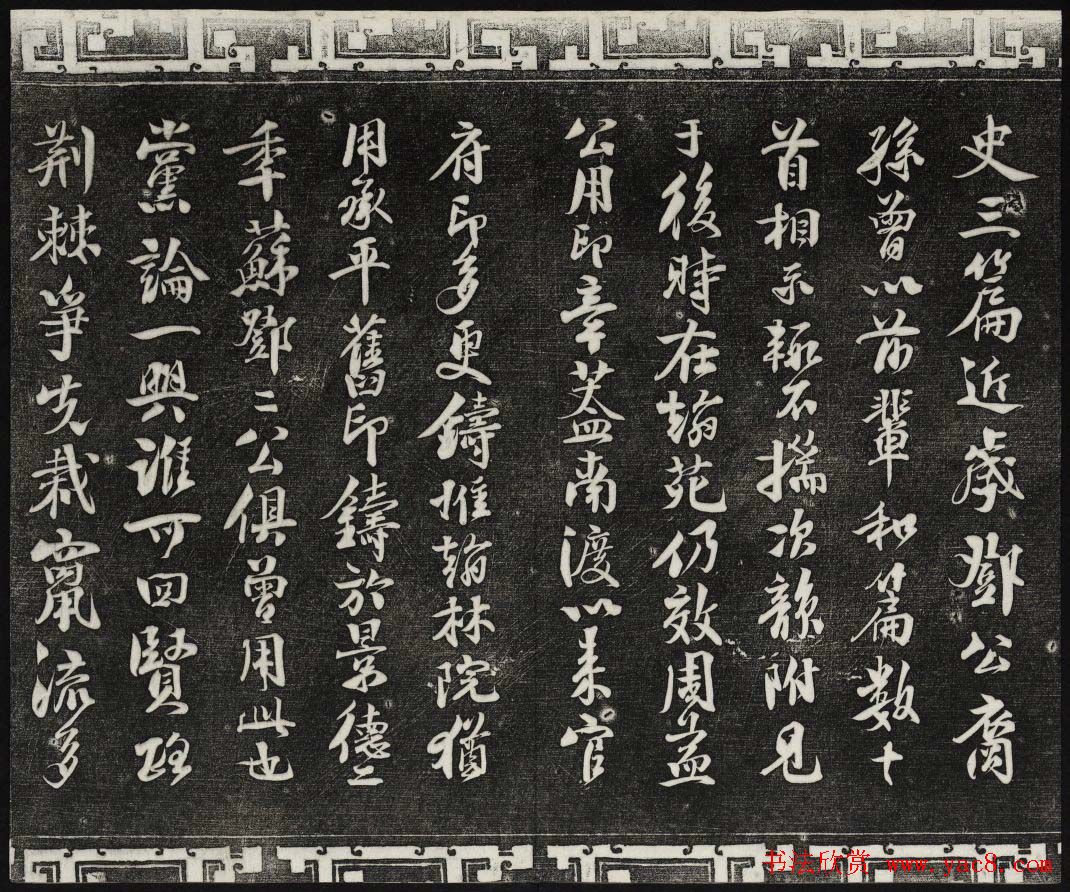 史三篇近歲鄧公裔
孫曾以前輩和篇數十
首相示輒不揣次韻附見
于後時在翰苑仍效周益
公用印章蓋南渡以来官
府印多更鑄惟翰林院猶
用承平舊印鑄於景德二
年蘇鄧二公俱曾用此也
黨論一興誰可回賢路
荆棘爭先栽竄流多
书法欣赏 www.yac8.com